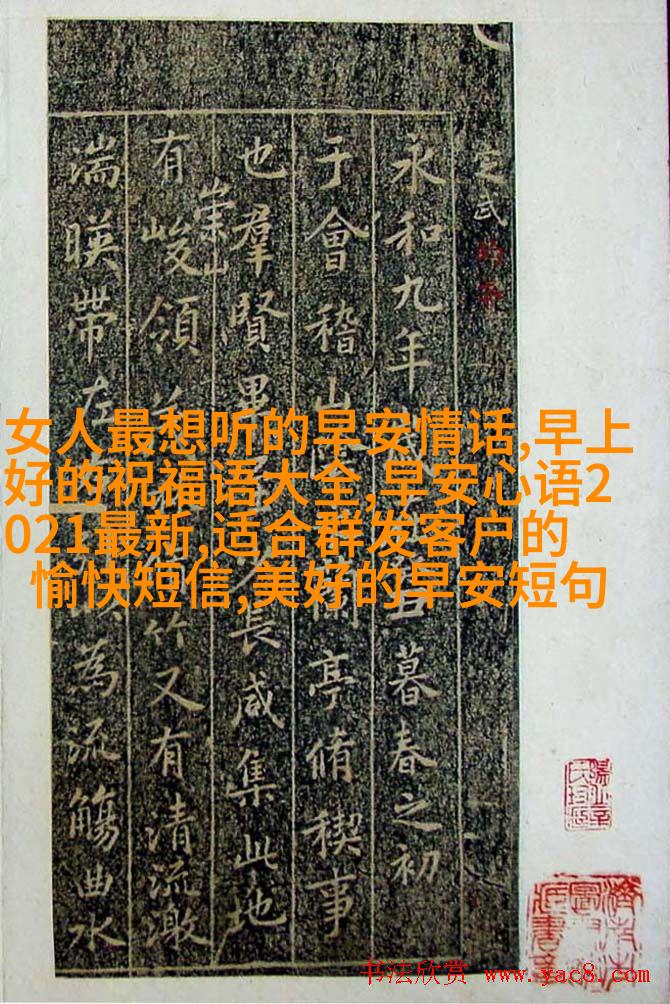 女人最想听的早安情话,早上
好的祝福语大全,早安心语2
021最新,适合群发客户的
愉快短信,美好的早安短句
定武
永和九年歲丑暮春之初
于會稽山蘭亭脩稧事
也羣賢畢少長咸集此地
有崇山峻領竹又有清流激
湍暎帶左為流觴曲水
书法欣赏 www.yac8.com